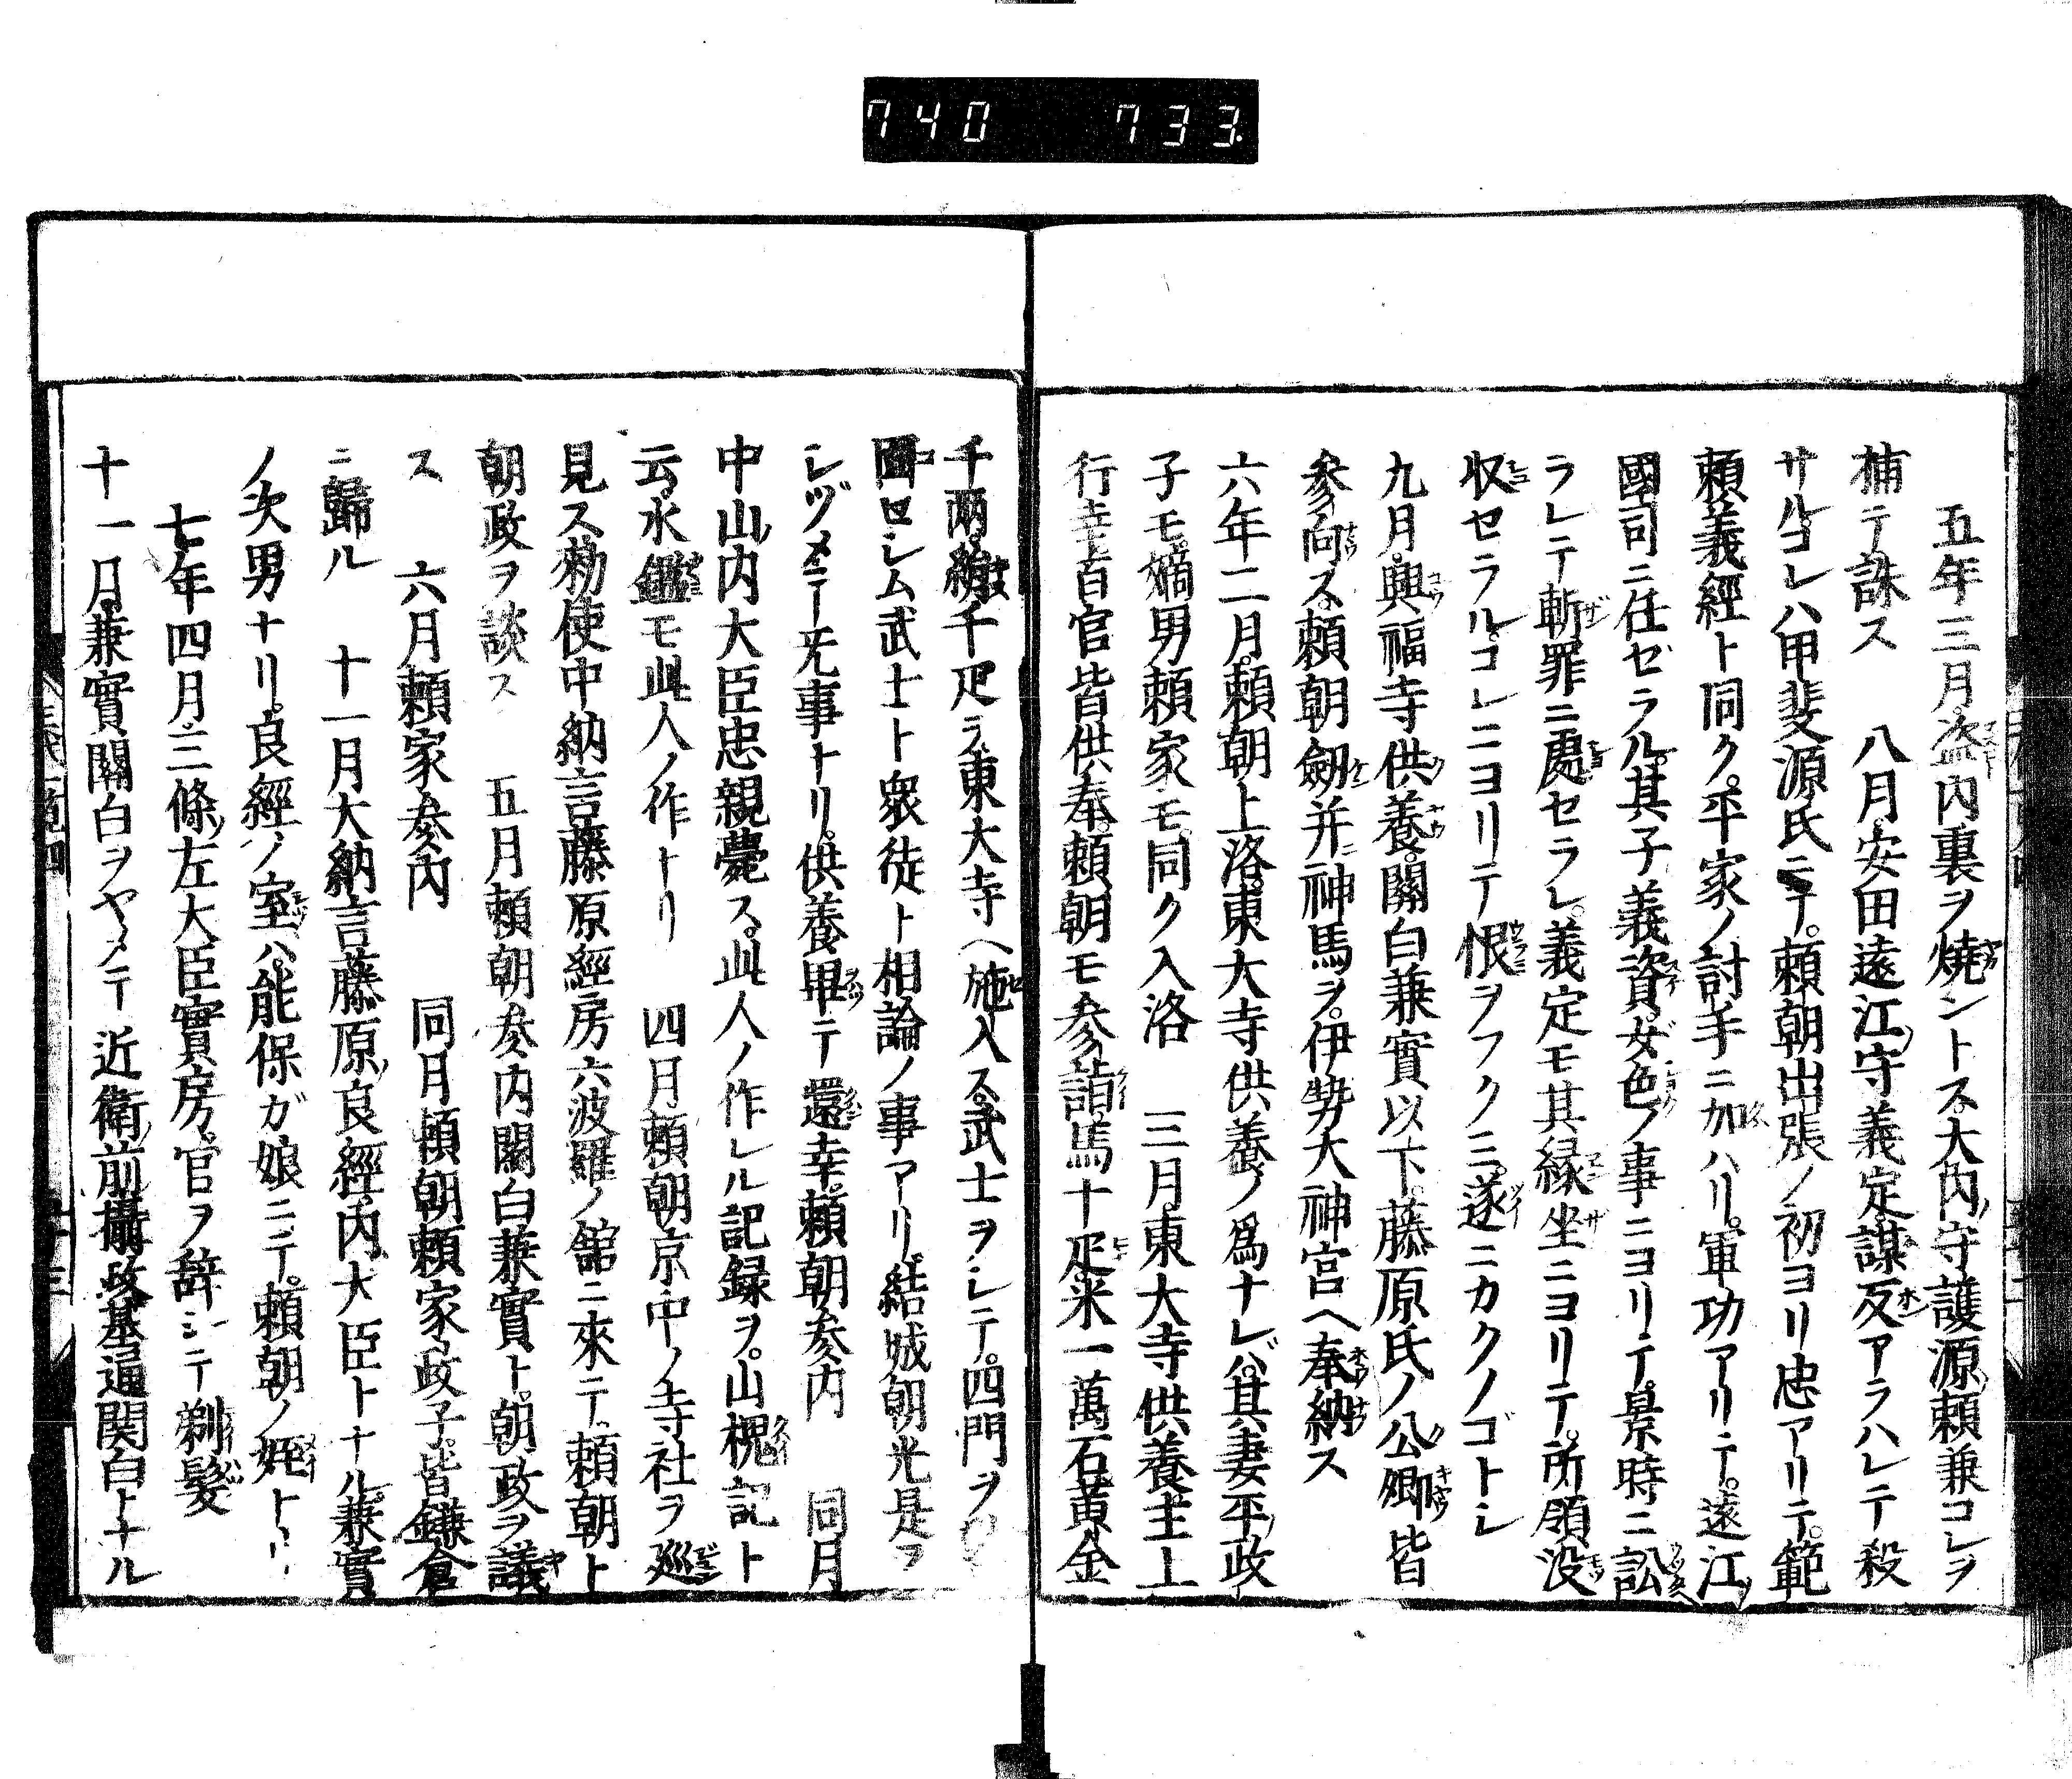 740 733
五年三月盗内裏ヲ燒ントス大内守護源頼兼コレヲ
捕テ誅ス 八月安田遠江守義定謀反アラハレテ殺
サルコレハ甲斐源氏ニテ頼朝出張ノ初ヨリ忠アリテ範
頼義經ト同ク平家ノ討手ニ加ハリ軍功アリテ遠江
國司ニ任ゼラル其子義資女色ノ事ニヨリテ景時ニ訟
ラレテ斬罪ニ處セラレ義定モ其縁坐ニヨリテ所領没
収セラルコレニヨリテ恨ヲフクミ遂ニカクノゴトシ
九月興福寺供養關白兼實以下藤原氏ノ公卿皆
參向ス頼朝劔并神馬ヲ伊勢大神宮ヘ奉納ス
六年二月頼朝上洛東大寺供養ノ爲ナレバ其妻平政
子モ嫡男頼家モ同ク入洛 三月東大寺供養主上
行幸百官皆供奉頼朝モ参詣馬十疋米一萬石黄金
千兩絹千疋ヲ東大寺ヘ施入ス武士ヲシテ四門ヲ
ロシム武士ト衆徒ト相論ノ事アリ結城朝光是ヲ
シヅメテ无事ナリ供養畢テ還幸頼朝参内 同月
中山内大臣忠親薨ス此人ノ作レル記録ヲ山槐記ト
云水鑑モ此人ノ作ナリ 四月頼朝京中ノ寺社ヲ廵
見ス勅使中納言藤原經房六波羅ノ舘ニ來テ頼朝ト
朝政ヲ談ス 五月頼朝参内關白兼實ト朝政ヲ議
ス 六月頼家参内 同月頼朝頼家政子皆鎌倉
ニ歸ル 十一月大納言藤原良經内大臣トナル兼實
ノ次男ナリ良經ノ室ハ能保ガ娘ニテ頼朝ノ姪ナリ
七年四月三條左大臣實房官ヲ辞シテ剃髪
十一月兼實關白ヲヤメテ近衛前攝政基通関白トナル